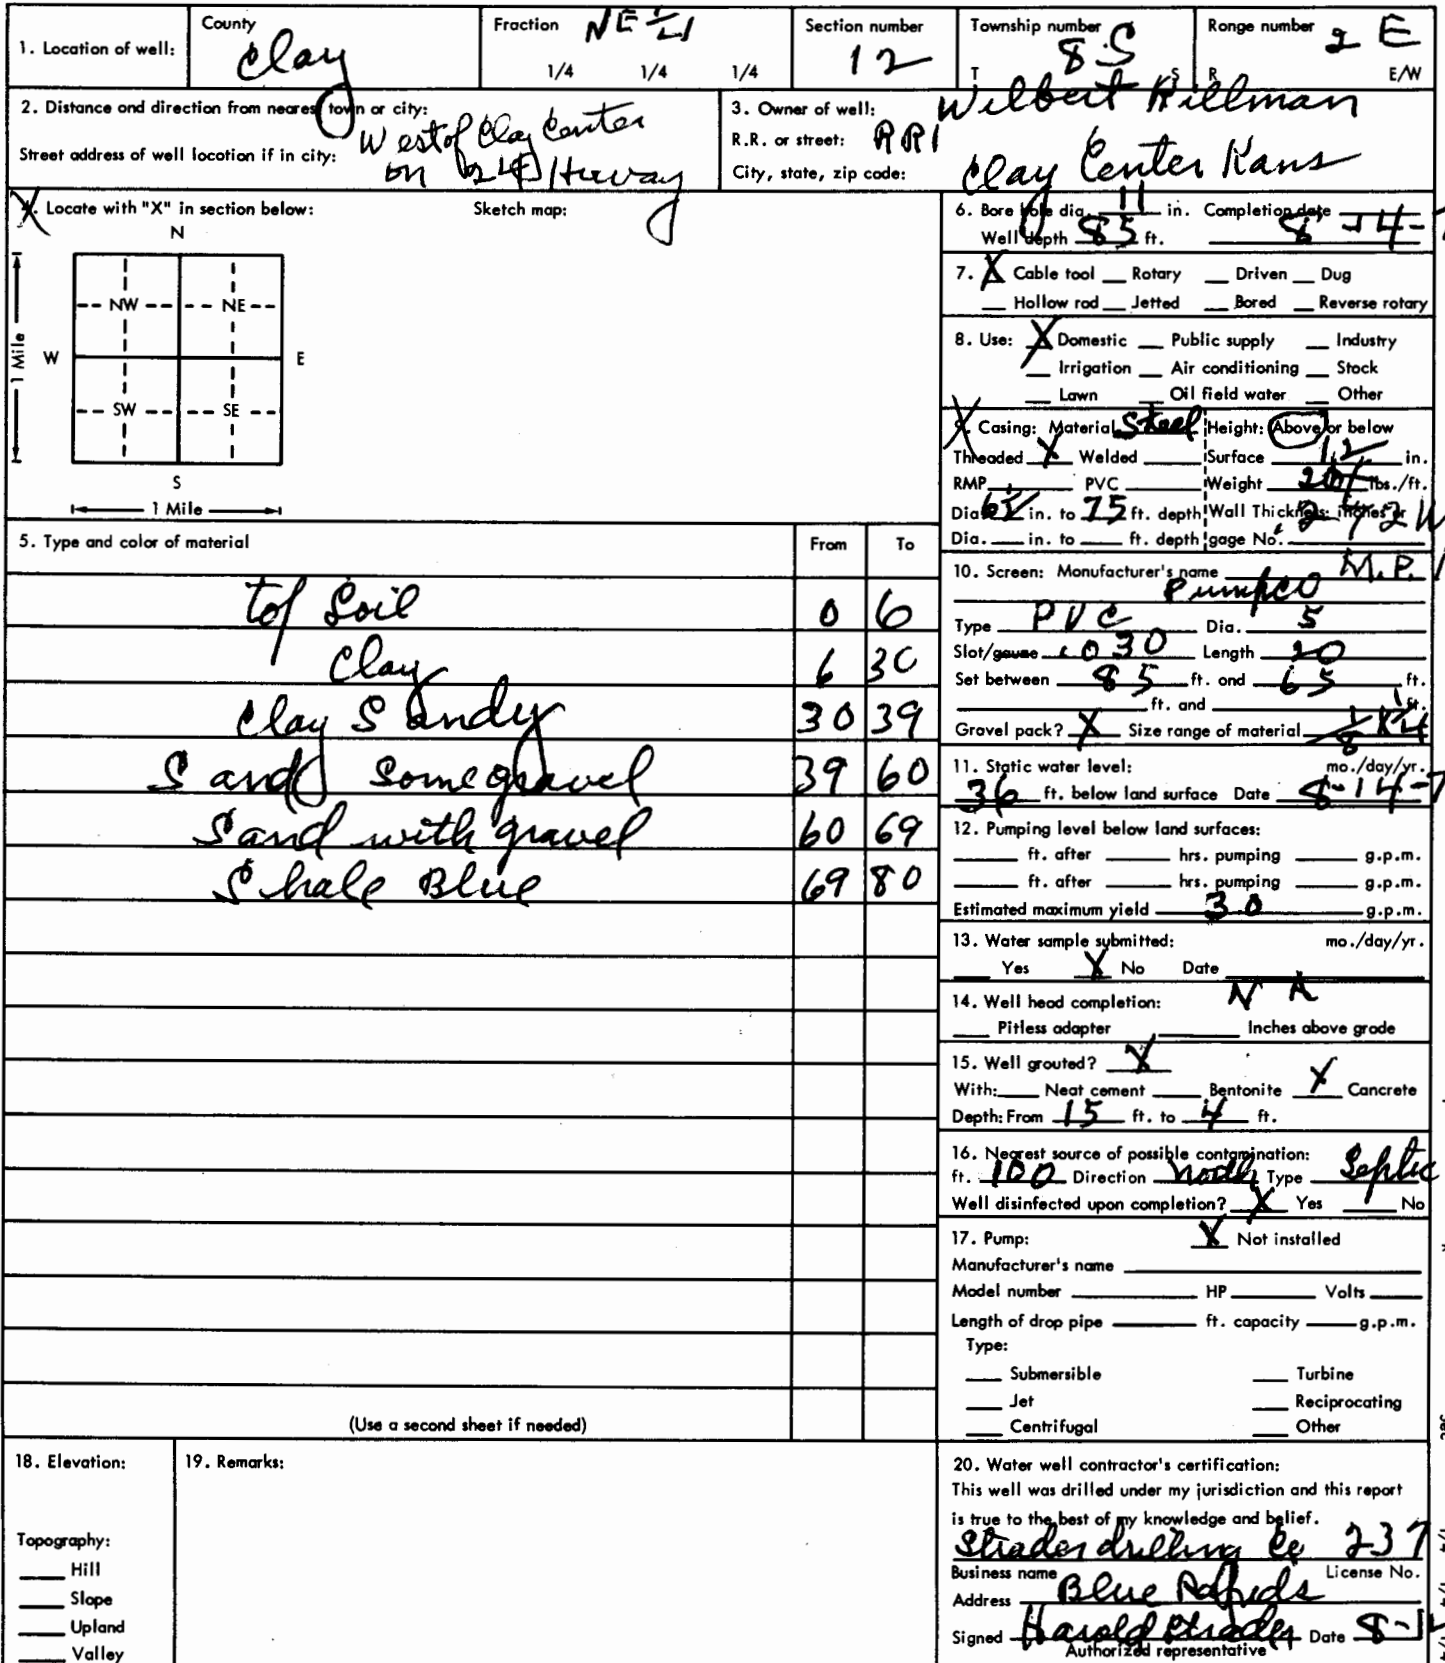 1. Location of well: County Clay Fraction NE 1/4 1/4 1/4 1/4 Section number 12 Township number T 8 S S Range number R 2 E E/W
2. Distance and direction from nearest town or city: West of Clay Center
Street address of well location if in city: on 24 Huway
3. Owner of well: Wilbert Killman
R.R. or street: RR1
City, state, zip code: Clay Center Kans
4. Locate with "X" in section below: Sketch map:
N
NW NE
W E
1 Mile
SW SE
S
1 Mile
5. Type and color of material From To
top Soil 0 6
Clay 6 30
Clay Sandy 30 39
Sand some gravel 39 60
Sand with gravel 60 69
Shale Blue 69 80
(Use a second sheet if needed)
6. Bore hole dia. 11 in. Completion date
Well depth 85 ft. 8-14-7
7. X Cable tool Rotary Driven Dug
Hollow rod Jetted Bored Reverse rotary
8. Use: X Domestic Public supply Industry
Irrigation Air conditioning Stock
Lawn Oil field water Other
9. Casing: Material Steel Height: Above or below
Threaded X Welded Surface 12 in.
RMP PVC Weight lbs./ft.
Dia. in. to 75 ft. depth Wall Thickness: inches or
Dia. in. to ft. depth gage No.
10. Screen: Manufacturer's name M.P.
Pumpco
Type PVC Dia. 5
Slot/gauze .030 Length 20
Set between 85 ft. and 65 ft.
ft. and ft.
Gravel pack? X Size range of material 1/8 x 1/4
11. Static water level: mo./day/yr.
36 ft. below land surface Date 8-14-7
12. Pumping level below land surfaces:
ft. after hrs. pumping g.p.m.
ft. after hrs. pumping g.p.m.
Estimated maximum yield 30 g.p.m.
13. Water sample submitted: mo./day/yr.
Yes X No Date
14. Well head completion: N A
Pitless adapter Inches above grade
15. Well grouted? X
With: Neat cement Bentonite X Concrete
Depth: From 15 ft. to 4 ft.
16. Nearest source of possible contamination:
ft. 100 Direction north Type Septic
Well disinfected upon completion? X Yes No
17. Pump: X Not installed
Manufacturer's name
Model number HP Volts
Length of drop pipe ft. capacity g.p.m.
Type:
Submersible Turbine
Jet Reciprocating
Centrifugal Other
18. Elevation:
Topography:
Hill
Slope
Upland
Valley
19. Remarks:
20. Water well contractor's certification:
This well was drilled under my jurisdiction and this report
is true to the best of my knowledge and belief.
Strader drilling Co 237
Business name License No.
Address Blue Rapids
Signed Harold Strader Date 8-14
Authorized representative